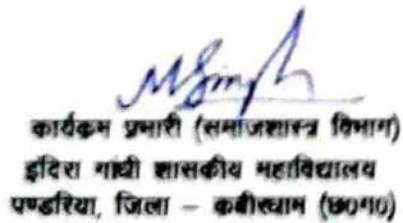 MSingh
कार्यक्रम प्रभारी (समाजशास्त्र विभाग)
इंदिरा गांधी शासकीय महाविद्यालय
पण्डरिया, जिला – कबीरधाम (छ0ग0)